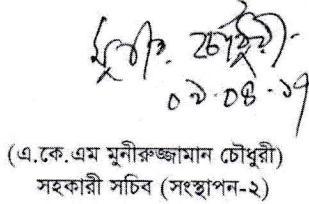 ০৯-০৪-১৭
(এ.কে.এম মুনীরুজ্জামান চৌধুরী)
সহকারী সচিব (সংস্থাপন-২)